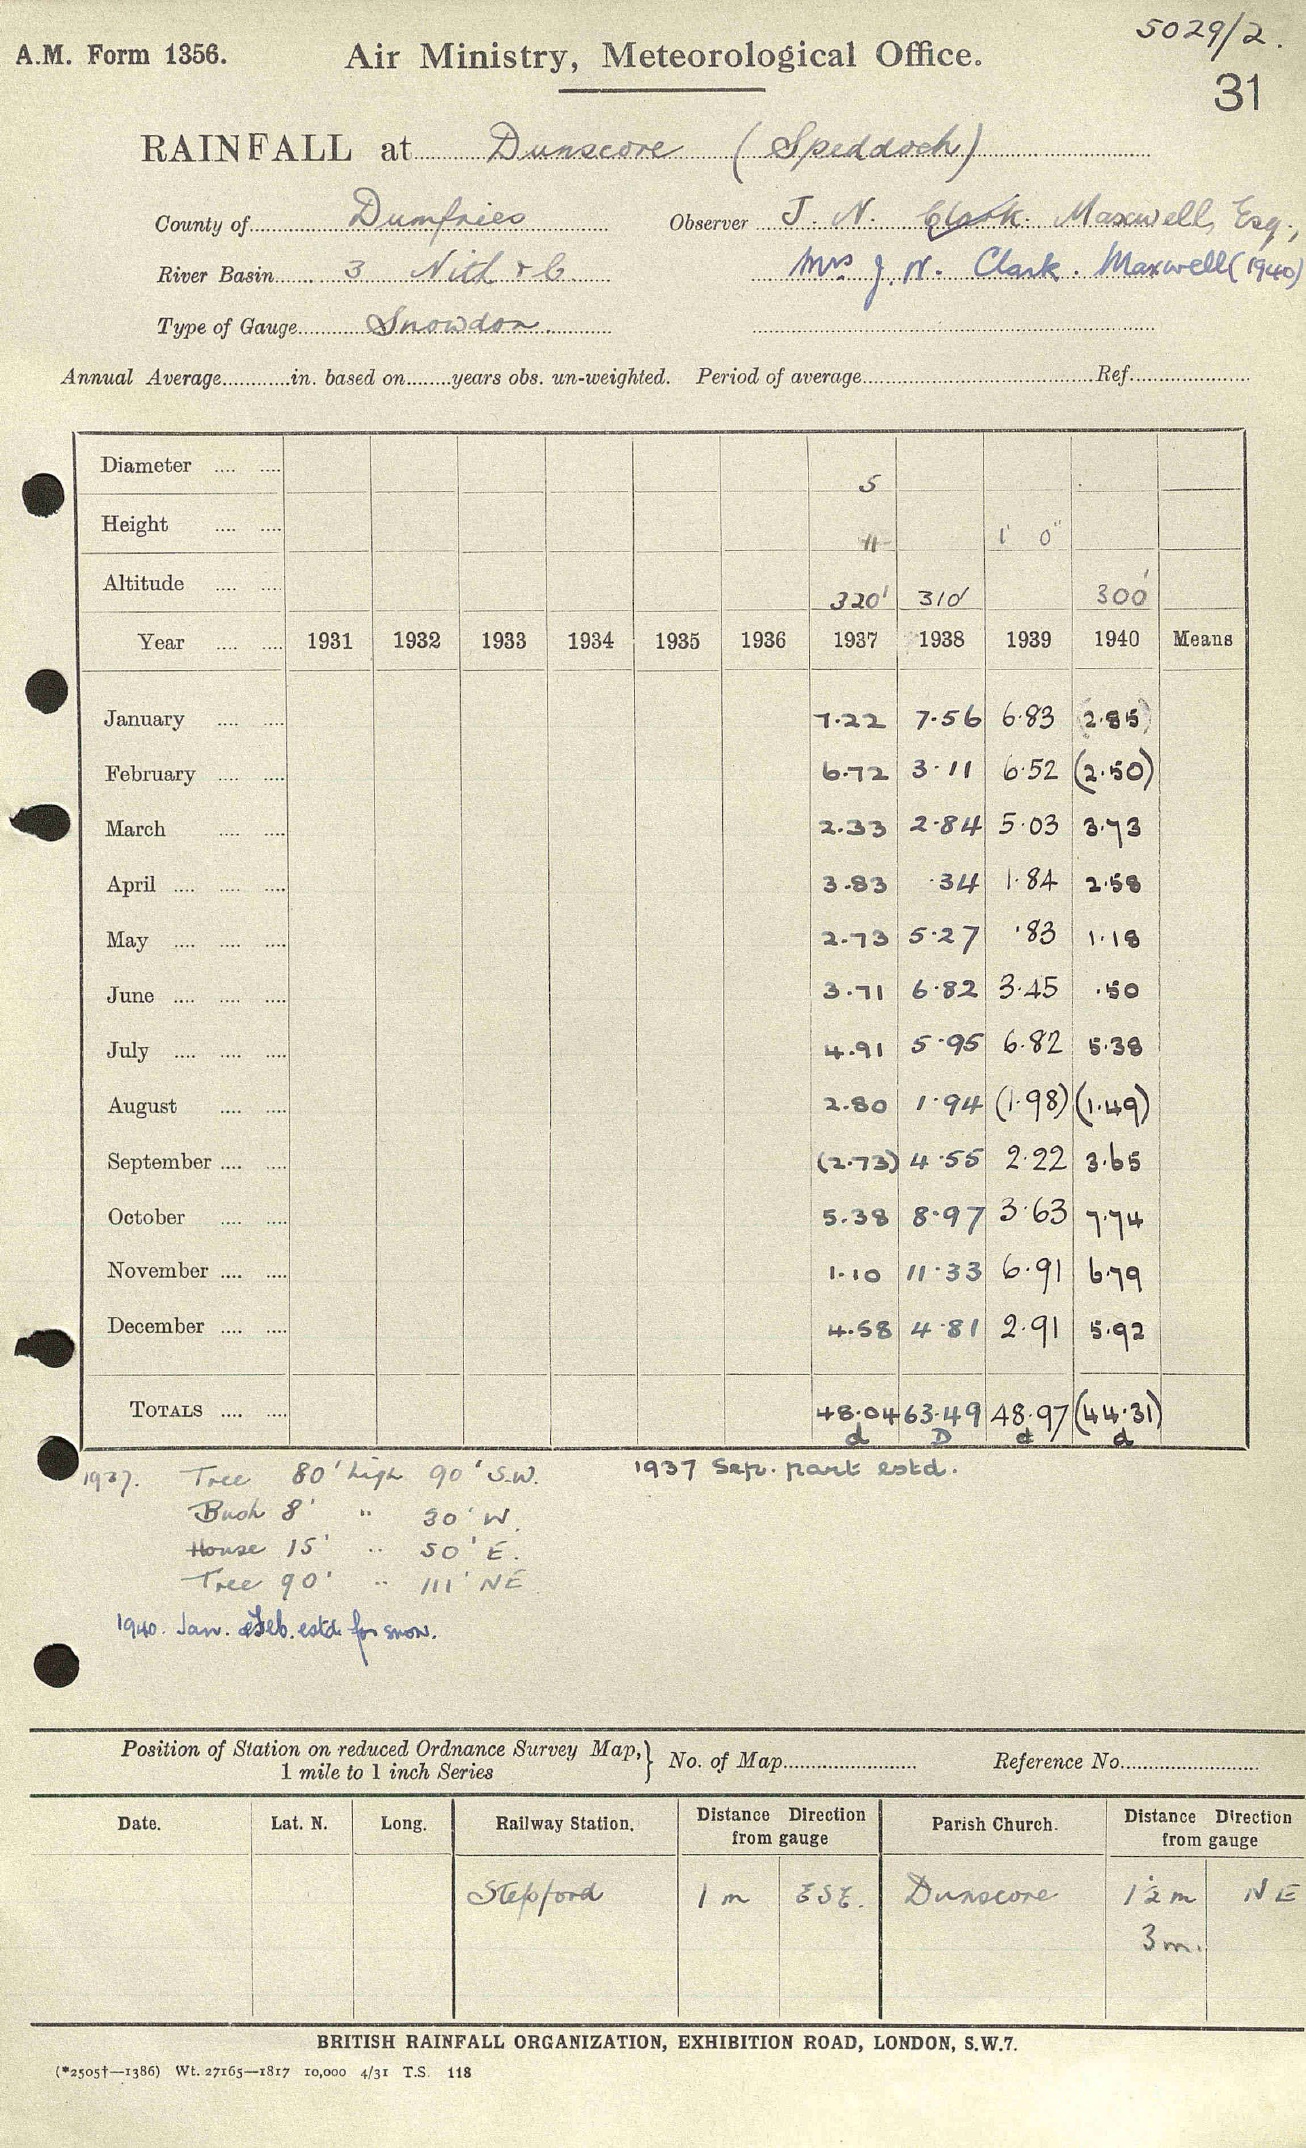 5029/2.
A.M. Form 1356. Air Ministry, Meteorological Office.
31
RAINFALL at Dunscore (Speddoch)
County of Dumfries Observer J. N. Clark. Maxwell, Esq.,
River Basin 3 Nith & C. Mrs J. N. Clark. Maxwell (1940)
Type of Gauge Snowdon.
Annual Average............in. based on........years obs. un-weighted. Period of average........................................Ref.....................
Diameter .... .... 5
Height .... .... 11 1' 0"
Altitude .... .... 320' 310' 300'
Year .... .... 1931 1932 1933 1934 1935 1936 1937 1938 1939 1940 Means
January .... .... 7.22 7.56 6.83 (2.85)
February .... .... 6.72 3.11 6.52 (2.50)
March .... .... 2.33 2.84 5.03 3.73
April .... .... .... 3.83 .34 1.84 2.58
May .... .... .... 2.73 5.27 .83 1.18
June .... .... .... 3.71 6.82 3.45 .50
July .... .... .... 4.91 5.95 6.82 5.38
August .... .... 2.80 1.94 (1.98) (1.49)
September .... .... (2.73) 4.55 2.22 3.65
October .... .... 5.38 8.97 3.63 7.74
November .... .... 1.10 11.33 6.91 6.79
December .... .... 4.58 4.81 2.91 5.92
TOTALS .... .... 48.04 63.49 48.97 (44.31)
d D d d
1937. Tree 80' high 90' S.W. 1937 Sep. part estd.
Bush 8' " 30' W.
House 15' " 50' E.
Tree 90' " 111' NE
1940. Jan. & Feb. estd. for snow.
Position of Station on reduced Ordnance Survey Map, } No. of Map........................ Reference No.........................
1 mile to 1 inch Series
Date. Lat. N. Long. Railway Station. Distance Direction from gauge Parish Church. Distance Direction from gauge
Stepford 1 m ESE. Dunscore 1½ m NE
3 m.
BRITISH RAINFALL ORGANIZATION, EXHIBITION ROAD, LONDON, S.W.7.
(*2505†—1386) Wt. 27165—1817 10,000 4/31 T.S. 118